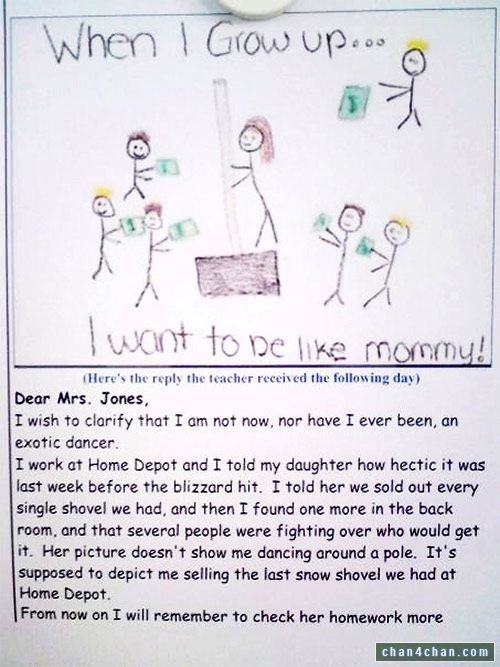 When I Grow up...
I want to be like mommy!
(Here's the reply the teacher received the following day)
Dear Mrs. Jones,
I wish to clarify that I am not now, nor have I ever been, an
exotic dancer.
I work at Home Depot and I told my daughter how hectic it was
last week before the blizzard hit.  I told her we sold out every
single shovel we had, and then I found one more in the back
room, and that several people were fighting over who would get
it.  Her picture doesn't show me dancing around a pole.  It's
supposed to depict me selling the last snow shovel we had at
Home Depot.
From now on I will remember to check her homework more
chan4chan.com